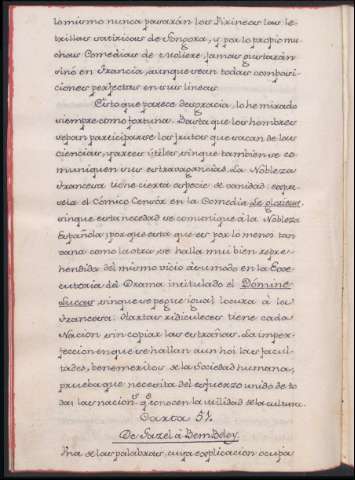 lo mismo nunca pasarán los Pirineos las le-
trillas satiricas de Gongora, y por lo propio mu-
chas Comedias de Moliere, jamas gustarán
sinó en Francia, aunque sean todas composi-
ciones perfectas en sus lineas.
Esto que parece desgracia, lo he mirado
siempre como fortuna. Basta que los hombres
sepan participarse los frutos que sacan de las
ciencias, y artes útiles, sin que tambien se co-
muniquen sus extravagancias. La Nobleza
Francesa tiene cierta especie de vanidad:
el Cómico Censór en la Comedia Le glorieux
sin que esta necedad se comunique á la Nobleza
Española; por que esta que es por lo menos tan
vana como la otra, se halla mui bien repre-
hendida del mismo vicio á su modo en la Exe-
cutoria del Drama intitulado el Dómine
Lucas, sin que se pegue igual locura á los
Franceses. Hartas ridiculeces tiene cada
Nacion sin copiar las estrañas. La imper-
feccion en que se hallan aun hoi las facul-
tades, beneméritas de la Sociedad humana,
prueba que necesita del esfuerzo unido de to-
das las nacion.s q.e conocen la utilidad de la cultura.
Carta 51.
De Gazel á Ben-Beley.
Una de las palabras, cuya explicacion ocupa